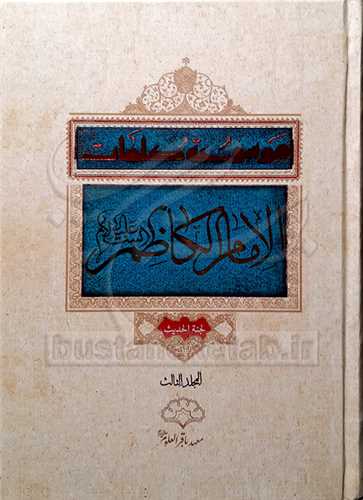 موسوعة كلمات
الإمام الكاظم عليه السلام
لجنة الحديث
bustaneketab.ir
المجلد الثالث
معهد باقر العلوم